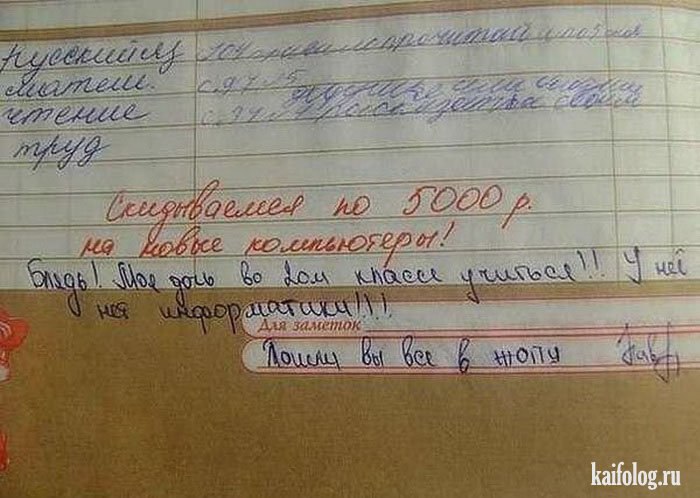 Русский яз 104 правило прочитай
матем. с.97 №5
чтение с.94
труд
Скидываемся по 5000 р.
на новые компьютеры!
Блядь! Моя дочь во 2ом классе учиться!!! У неё
нет информатики!!!!
Для заметок
Пошли вы все в жопу
kaifolog.ru